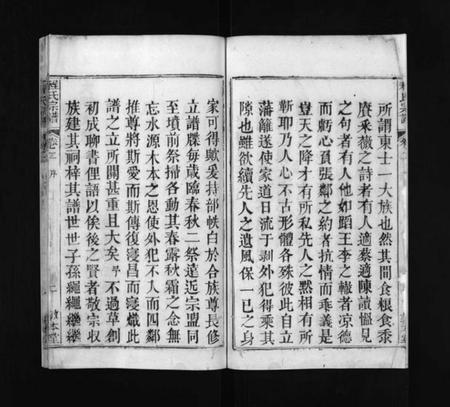 所謂東士一大族也然其間食粮食黍
賡采薇之詩者有人適蔡適陳讀慍見
之句者有人他如蹈王李之轍者凉德
而虧心負張鄰之約者抗情而乖義是
豈天之降才有所私先人之黙相有所
靳耶乃人心不古形體各殊彼此自立
藩離遂使家道日流于剥外犯得乘其
隙也雖欲續先人之遺風保一已之身
家可得歟爰持部帙白於合族尊長修
立譜牒每歲臨春秋二祭遠近宗盟同
至墳前祭掃各動其春露秋霜之念無
忘水源木本之恩使外犯不入而四鄰
推尊將斯愛而斯傳復寢昌而寢熾此
譜之立所關甚重且大矣予不過草創
初成聊書俚語以俟後之賢者敬宗収
族建其祠梓其譜世世子孫繩繩繼繼
程氏宗譜
卷之
序
二
敦本堂